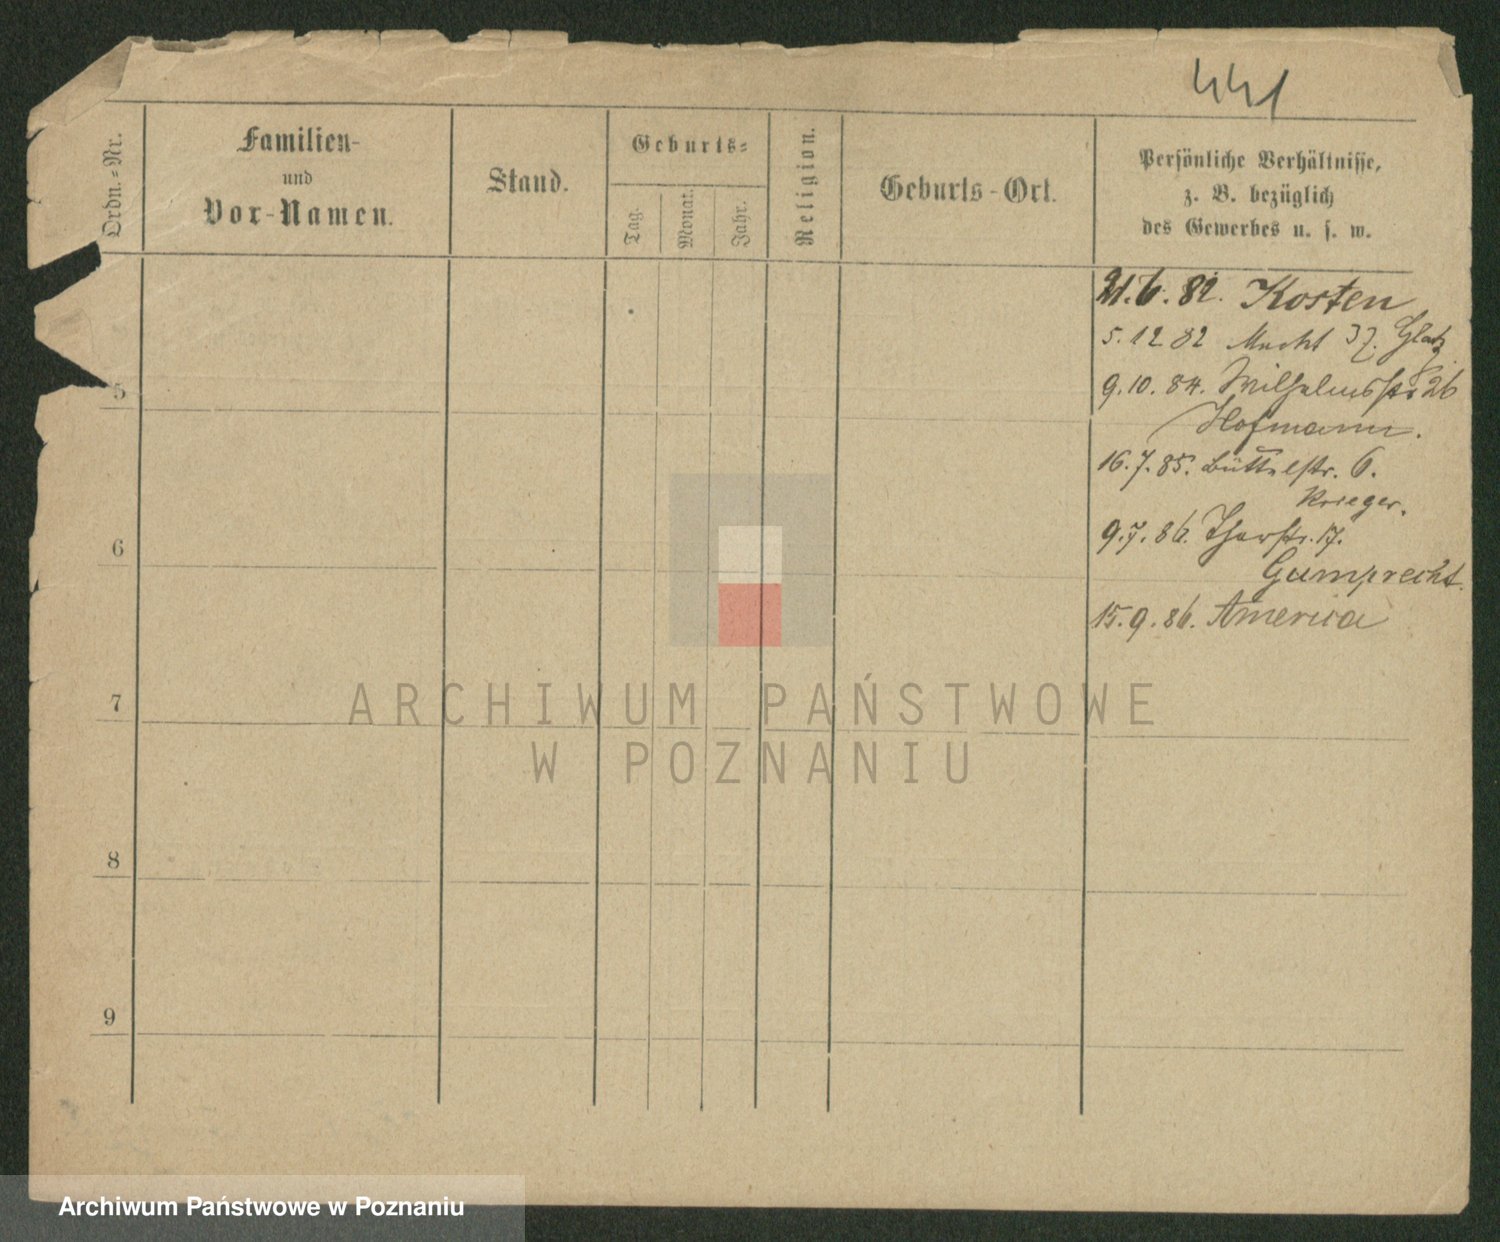 441
Ordn.-Nr.
Familien-
und
Vor-Namen.
Stand.
Geburts-
Tag.
Monat.
Jahr.
Religion.
Geburts-Ort.
Persönliche Verhältnisse,
z. B. bezüglich
des Gewerbes u. s. w.
21.6.82. Kosten
5.12 82 Markt 37. Glatz
9.10.84. Wilhelmsstr 26
Hofmann.
16.7.85. Büttelstr. 6.
Krieger.
9.7.86. 17.
Gumprecht.
15.9.86. America
5
6
7
8
9
ARCHIWUM PAŃSTWOWE
W POZNANIU
Archiwum Państwowe w Poznaniu